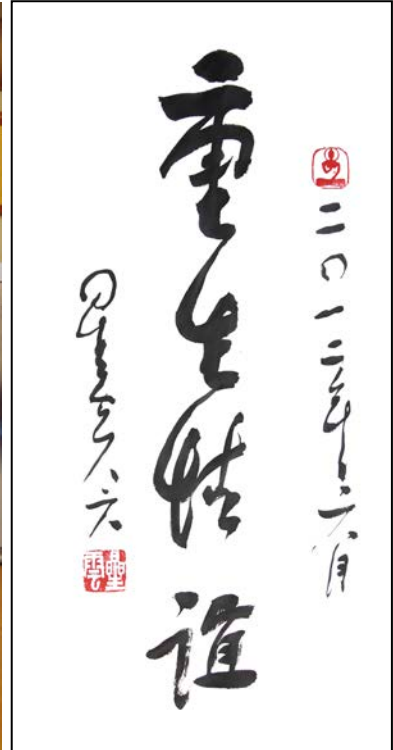 二〇一二年六月
重在情誼
星雲八六
星雲